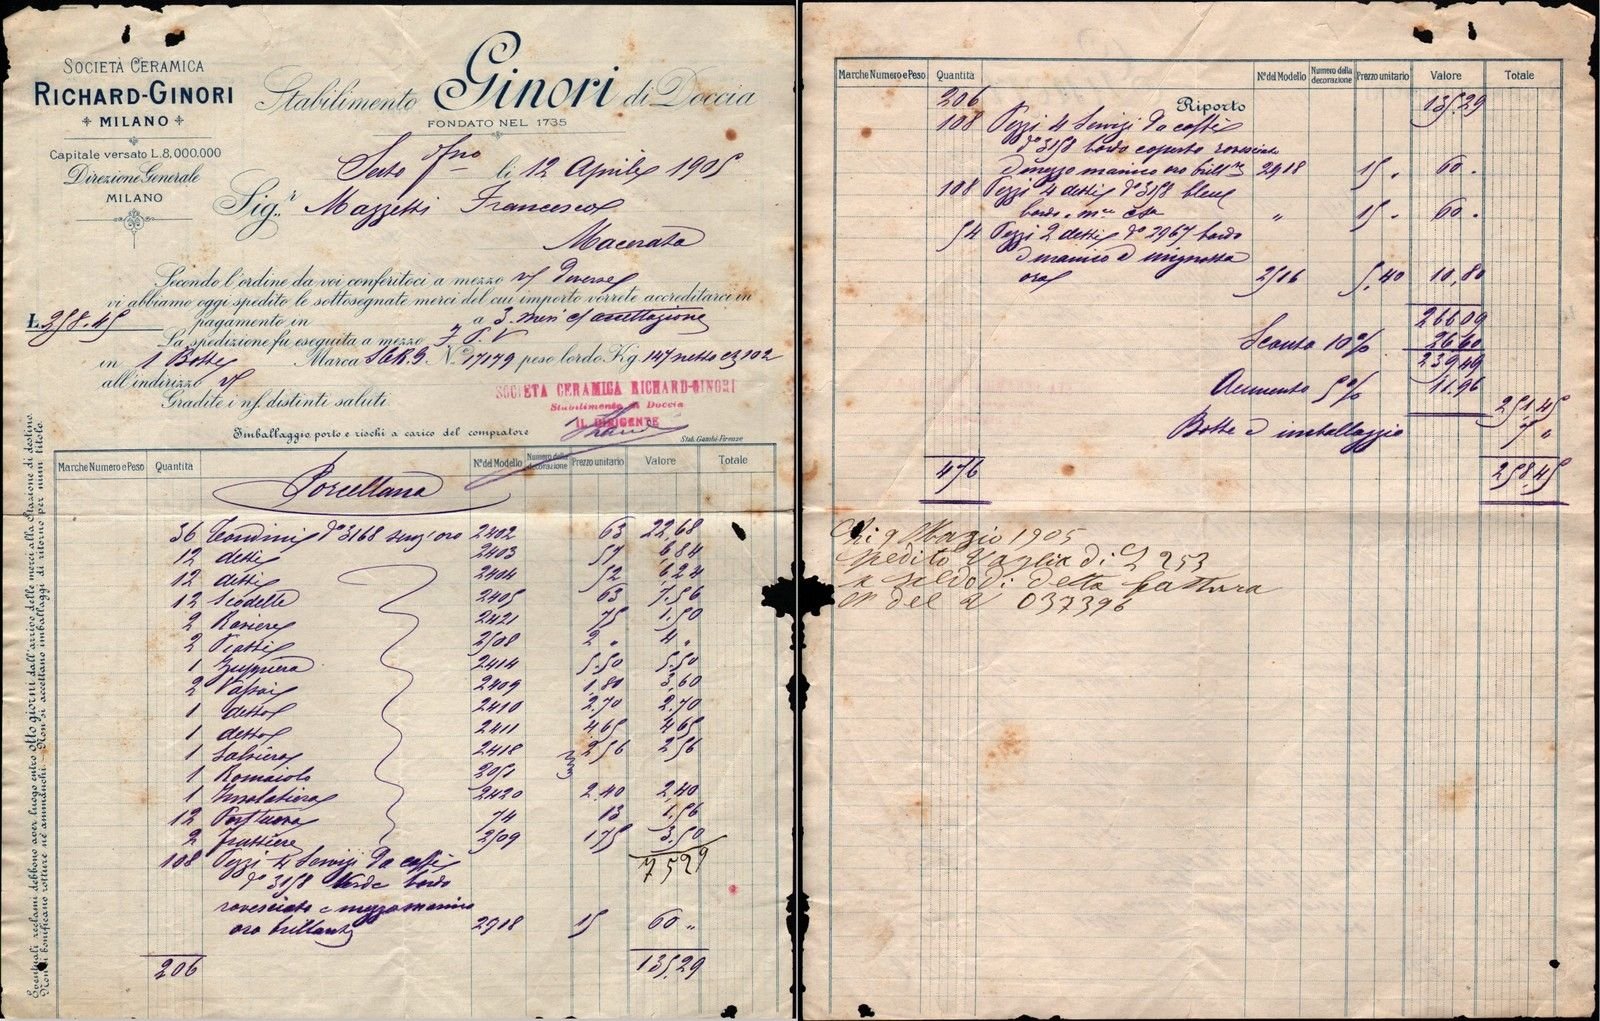 SOCIETÀ CERAMICA
RICHARD-GINORI
MILANO
Capitale versato L. 8,000,000
Direzione Generale
MILANO
Stabilimento Ginori di Doccia
FONDATO NEL 1735
Sesto Fno li 12 Aprile 1905
Sig.r Mazzetti Francesco
Macerata
Secondo l'ordine da voi conferitoci a mezzo
vi abbiamo oggi spedito le sottosegnate merci del cui importo vorrete accreditarci in
L. 258.45 pagamento in a 3 mesi c/ accettazione
La spedizione fu eseguita a mezzo F. P. V
in 1 Botte Marca S.C.R.G. N. 17179 peso lordo Kg 147 netto 102
all'indirizzo
Gradite i ns. distinti saluti.
SOCIETA CERAMICA RICHARD-GINORI
Stabilimento di Doccia
IL DIRIGENTE
Imballaggio porto e rischi a carico del compratore
Stab. Gambi-Firenze
Eventuali reclami debbono aver luogo entro otto giorni dall'arrivo delle merci alla Stazione di destino
Non si bonificano rotture nè ammanchi. Non si accettano imballaggi di ritorno per niun titolo.
Marche Numero e Peso Quantità No del Modello Numero della decorazione Prezzo unitario Valore Totale
Porcellana
36 Tondini do 3168 senz'oro 2402 63 22,68
12 detti 2403 57 6,84
12 detti 2404 52 6,24
12 Scodelle 2405 63 7.56
2 Raviere 2421 75 1.50
2 Piatti 2508 2 „ 4 „
1 Zuppiera 2414 5.50 5.50
2 Vassoi 2409 1,80 3,60
1 detto 2410 2.70 2.70
1 detto 2411 4 65 4 65
1 Salsiera 2418 2 56 2 56
1 Romaiolo 2051
1 Insalatiera 2420 2.40 2,40
12 Portuova 74 13 1.56
2 Fruttiere 2509 1 75 3.50
75 29
108 Pezzi 4 Servizi da caffè
do 3158 Verde bordo
rovesciato e mezzo manico
oro brillante 2918 15 60 „
206 135,29
Marche Numero e Peso Quantità No del Modello Numero della decorazione Prezzo unitario Valore Totale
206 Riporto 135,29
108 Pezzi 4 Servizi da caffè
do 3158 bordo coperto rovesciato
e mezzo manico oro brill.te 2918 15 „ 60 „
108 Pezzi 4 detti do 3158 bleu
bordo „ 15 „ 60 „
54 Pezzi 2 detti do 2967 bordo
e manico
oro 2506 5,40 10,80
266 09
Sconto 10% 26 60
239 49
Aumento 5% 11.96
251,45
Botte e imballaggio 7 „
476 258.45
Li 9 Maggio 1905
Spedito Vaglia di L 253
a saldo di detta fattura
037396